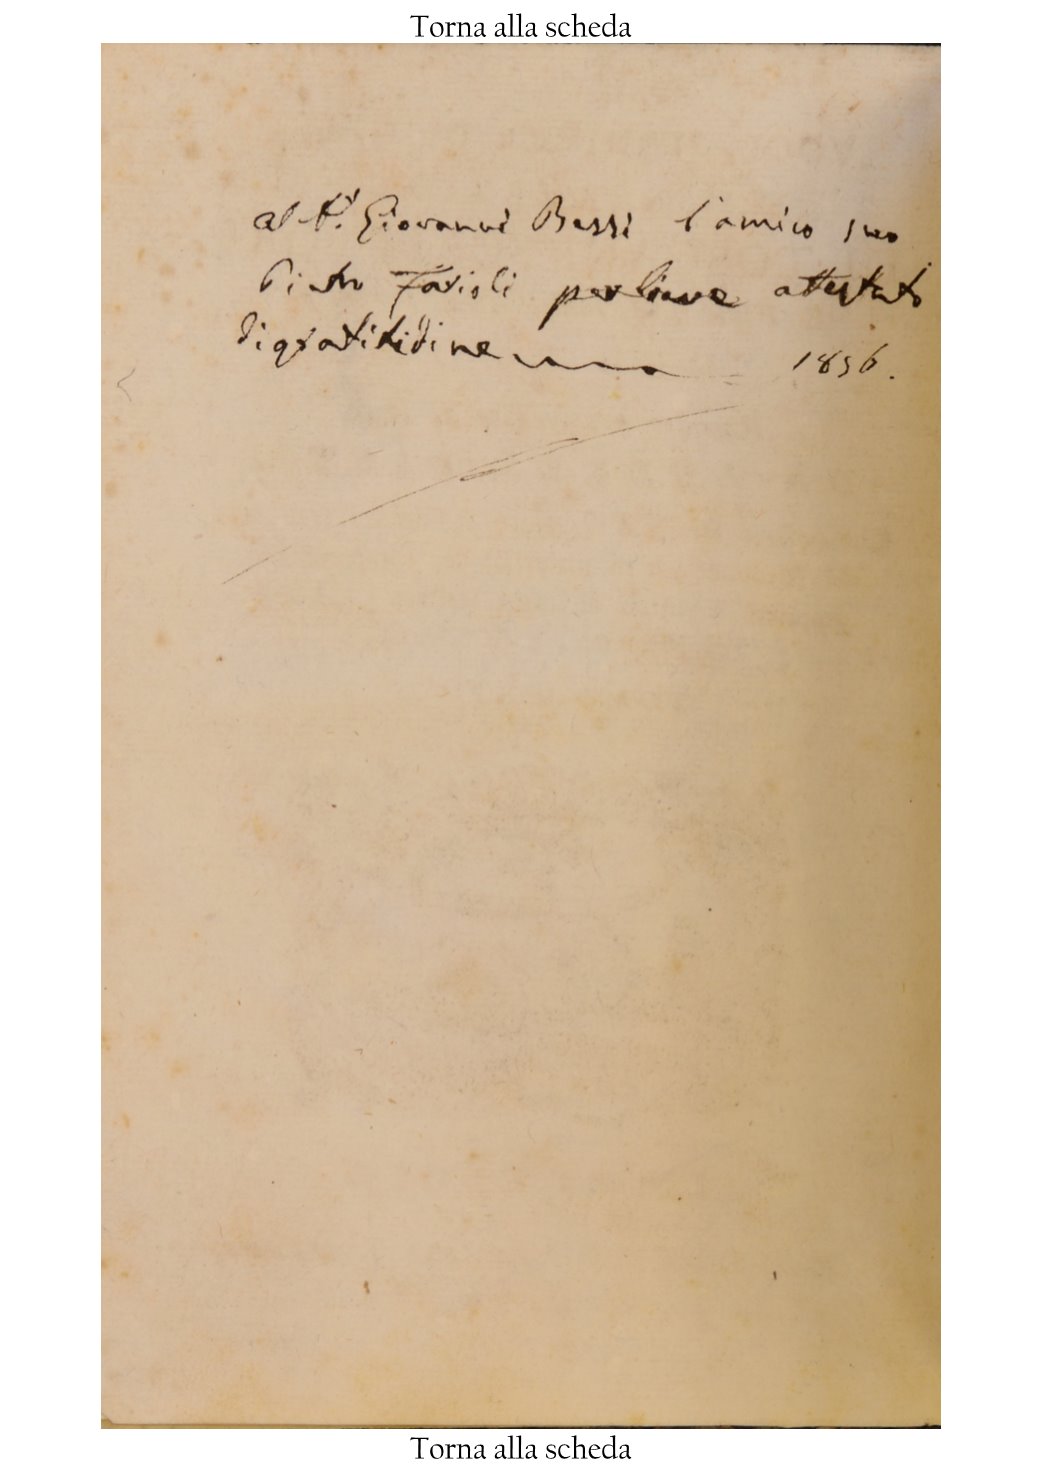 Torna alla scheda
al Giovanni Bassi l'amico suo
Pietro Favioli per lieve attestato
di gratitidine 1856.
Torna alla scheda